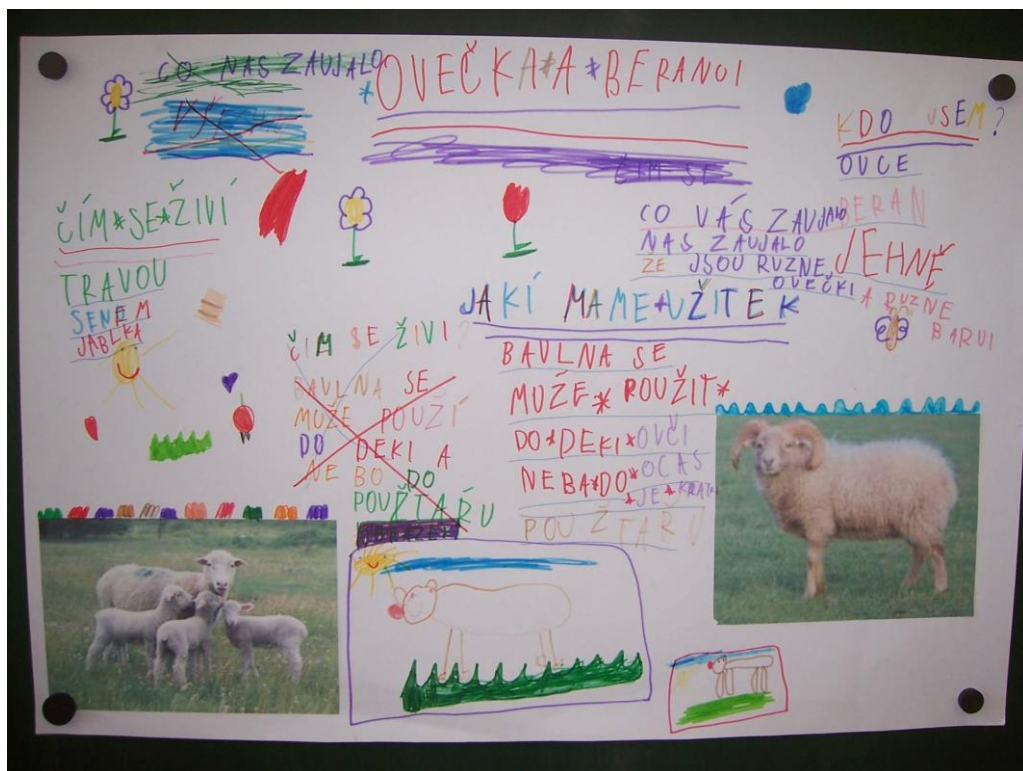 CO NAS ZAUJALO
*OVEČKA*A*BERANOI
KDO JSEM?
OVCE
BERAN
JEHNĚ
A RUZNE
BARVI
ČÍM SE
ČÍM*SE*ŽIVÍ
TRAVOU
SENEM
JABLKA
CO VÁS ZAUJALO
NAS ZAUJALO
ŽE JSOU RUZNE
OVEČKI
JAKÍ MAME*UŽITEK
ČIM SE ŽIVI?
BAVLNA SE
MUŽE POUŽÍ
DO DEKI A
NEBO DO
POUŽTAŘU
BAVLNA SE
MUŽE* POUŽIT*
DO*DEKI*OVČI
NEBA*DO*OCAS
*JE*KRATK
POUŽTAŘU